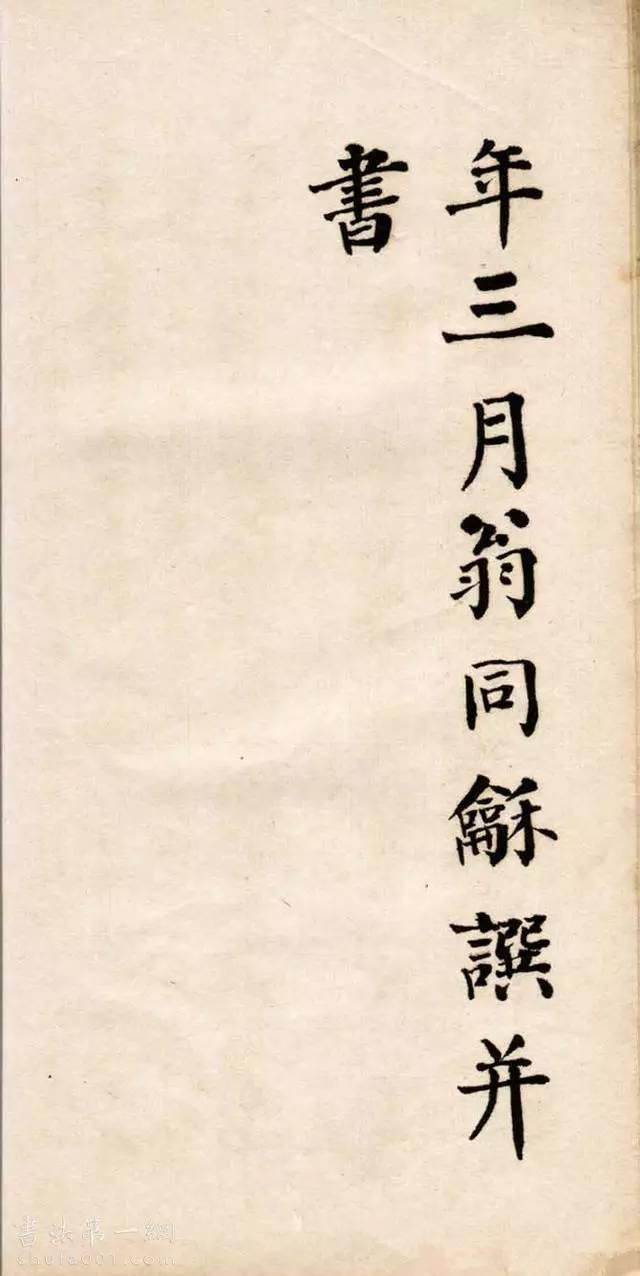 年三月翁同龢譔并
書
書法第一網
shufa001.com